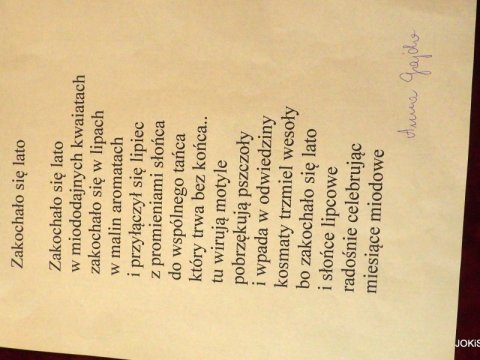 Zakochało się lato
Zakochało się lato
w miododajnych kwaiatach
zakochało się w lipach
w malin aromatach
i przyłączył się lipiec
z promieniami słońca
do wspólnego tańca
który trwa bez końca..
tu wirują motyle
pobrzękują pszczoły
i wpada w odwiedziny
kosmaty trzmiel wesoły
bo zakochało się lato
i słońce lipcowe
radośnie celebrując
miesiące miodowe
Anna Gajda
JOKiS